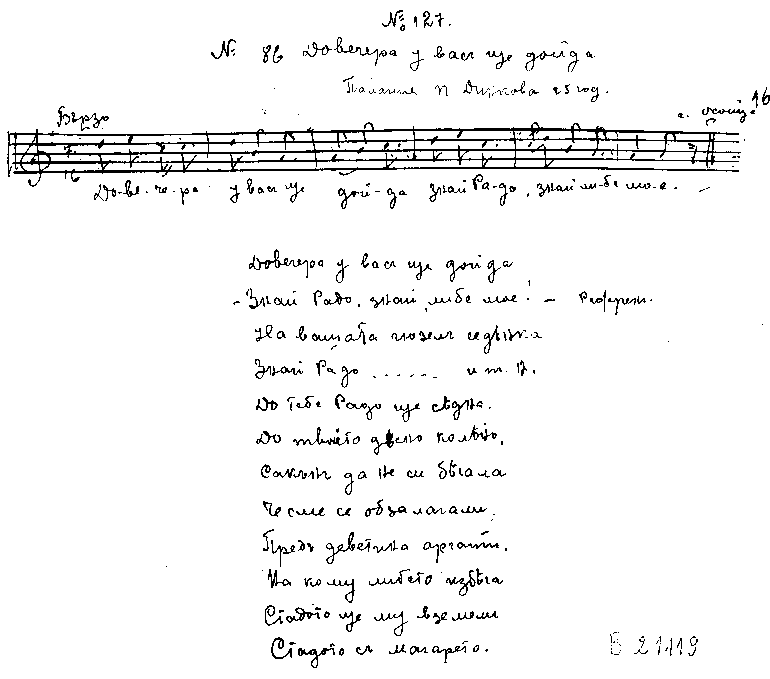 № 127.
№ 86 Довечера у васъ ще дойда
Дункова 25 год.
16
Бързо
7
16
До-ве-че-ра у васъ ще дой-да знай Ра-до, знай ли-бе мо-е.
Довечера у васъ ще дойда
- Знай Радо, знай, либе мое! - Рефренъ.
На вашата седѣнка
Знай Радо ...... и т. н.
До тебе Радо ще сѣдна.
До твойто дѣсно колѣно,
Сакънъ да не си бѣгала
Че сме се обзалагали,
Предъ деветина аргати.
На кому либето избѣга
Стадото ще му вземеме
Стадото съ магарето.
В 21419